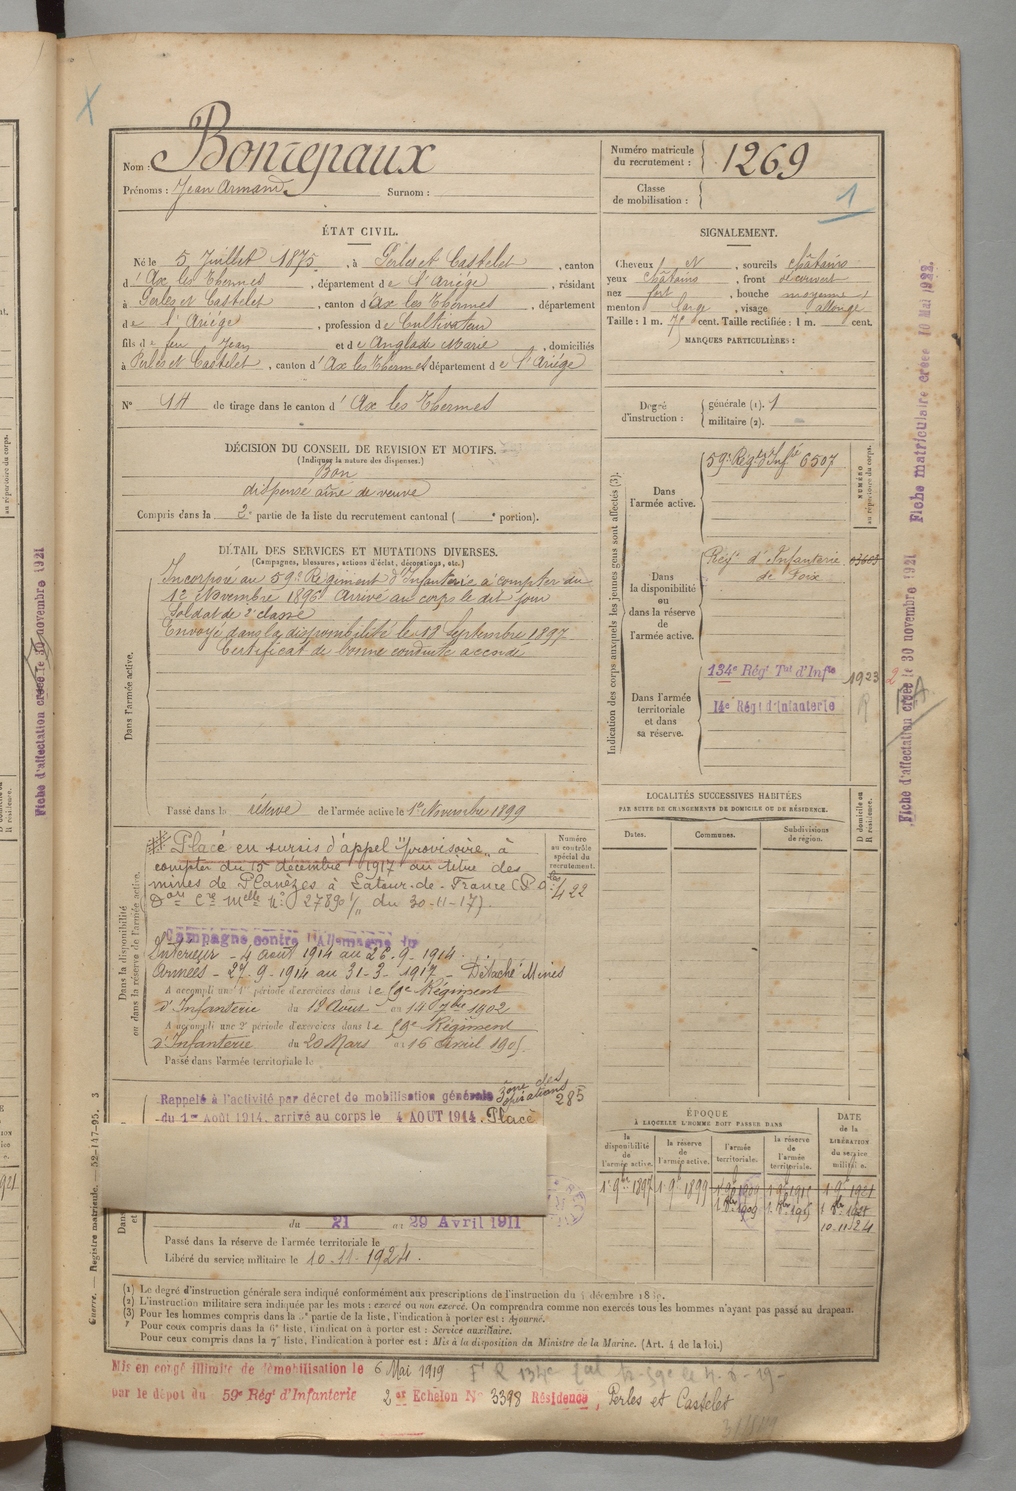 Nom : Bonrepaux
Prénoms : Jean Armand Surnom :
Numéro matricule du recrutement : 1269
Classe de mobilisation : 1
ÉTAT CIVIL.
Né le 5 Juillet 1875, à Perles et Castelet, canton
d'Ax les Thermes, département de l'Ariège, résidant
à Perles et Castelet, canton d'Ax les Thermes, département
de l'Ariège, profession de Cultivateur
fils de feu Jean et de Anglade Marie, domiciliés
à Perles et Castelet, canton d'Ax les Thermes département de l'Ariège
N° 14 de tirage dans le canton d'Ax les Thermes
SIGNALEMENT.
Cheveux N, sourcils châtains
yeux châtains, front découvert
nez fort, bouche moyenne
menton large, visage allongé
Taille : 1 m. 71 cent. Taille rectifiée : 1 m. cent.
MARQUES PARTICULIÈRES :
Degré d'instruction : générale (1). 1
militaire (2).
DÉCISION DU CONSEIL DE REVISION ET MOTIFS.
(Indiquer la nature des dispenses.)
Bon
dispensé aîné de veuve
Compris dans la 2e partie de la liste du recrutement cantonal ( e portion).
DÉTAIL DES SERVICES ET MUTATIONS DIVERSES.
(Campagnes, blessures, actions d'éclat, décorations, etc.)
Dans l'armée active.
Incorporé au 59e Régiment d'Infanterie à compter du
12 Novembre 1896 Arrivé au corps le dit jour
Soldat de 2e classe
Envoyé dans la disponibilité le 18 Septembre 1897
Certificat de bonne conduite accordé
Passé dans la réserve de l'armée active le 1er Novembre 1899
Indication des corps auxquels les jeunes gens sont affectés (3).
NUMÉRO au répertoire du corps.
Dans l'armée active.
59e Régt d'Infie 6507
Dans la disponibilité ou dans la réserve de l'armée active.
Régt d'Infanterie
de Foix
Dans l'armée territoriale et dans sa réserve.
134e Régt Tal d'Infie 1923
14e Régt d'Infanterie
Dans la disponibilité ou dans la réserve de l'armée active.
Placé en sursis d'appel provisoire, à
compter du 15 décembre 1917 au titre des
mines de Planèzes à Latour-de-France (P.O.)
du 30-11-17).
Numéro au contrôle spécial du recrutement.
422
Campagne contre l'Allemagne du
Intérieur - 4 août 1914 au 26-9-1914
Armées - 27-9-1914 au 31-3-1917 - Détaché Mines
A accompli une 1re période d'exercices dans le 59e Régiment
d'Infanterie du 18 Août au 14 7bre 1902
A accompli une 2e période d'exercices dans le 59e Régiment
d'Infanterie du 20 Mars au 16 Avril 1905.
Passé dans l'armée territoriale le
Rappelé à l'activité par décret de mobilisation générale
du 1er Août 1914, arrivé au corps le 4 AOUT 1914. Placé
Zone des opérations
285
du 21 au 29 Avril 1911
Passé dans la réserve de l'armée territoriale le
Libéré du service militaire le 10-11-1924.
LOCALITÉS SUCCESSIVES HABITÉES
PAR SUITE DE CHANGEMENTS DE DOMICILE OU DE RÉSIDENCE.
Dates. Communes. Subdivisions de région. D domicile ou R résidence.
ÉPOQUE
À LAQUELLE L'HOMME DOIT PASSER DANS
la disponibilité de l'armée active. la réserve de l'armée active. l'armée territoriale. la réserve de l'armée territoriale.
DATE de la LIBÉRATION du service militaire.
1er 9bre 1897 1er 9bre 1899 1er 9bre 1909 1er 9bre 1915 1er 9bre 1921
10-11-24
(1) Le degré d'instruction générale sera indiqué conformément aux prescriptions de l'instruction du 4 décembre 1889.
(2) L'instruction militaire sera indiquée par les mots : exercé ou non exercé. On comprendra comme non exercés tous les hommes n'ayant pas passé au drapeau.
(3) Pour les hommes compris dans la 5e partie de la liste, l'indication à porter est : Ajourné.
Pour ceux compris dans la 6e liste, l'indication à porter est : Service auxiliaire.
Pour ceux compris dans la 7e liste, l'indication à porter est : Mis à la disposition du Ministre de la Marine. (Art. 4 de la loi.)
Mis en congé illimité de démobilisation le 6 Mai 1919
par le dépôt du 59e Régt d'Infanterie 2e Echelon N° 3398 Résidence, Perles et Castelet
Guerre. — Registre matricule. — 52-147-95. 3
Fiche matriculaire créée 10 Mai 1922.
Fiche d'affectation créée le 30 novembre 1921
Fiche d'affectation créée le 30 novembre 1921